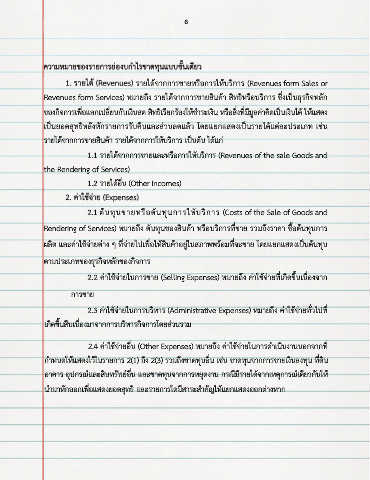 6
ความหมายของรายการย่องบกำไรขาดทุนแบบขั้นเดียว
1. รายได้ (Revenues) รายได้จากการขายหรือการให้บริการ (Revenues form Sales or
Revenues form Services) หมายถึง รายได้จากการขายสินค้า สิทธิหรือบริการ ซึ่งเป็นธุรกิจหลัก
ของกิจการเพื่อแลกเปลี่ยนกับเงินสด สิทธิเรียกร้องให้ชำระเงิน หรือสิ่งที่มีมูลค่าคิดเป็นเงินได้ ให้แสดง
เป็นยอดสุทธิหลังหักรายการรับคืนและส่วนลดแล้ว โดยแยกแสดงเป็นรายได้แต่ละประเภท เช่น
รายได้จากการขายสินค้า รายได้จากการให้บริการ เป็นต้น ได้แก่
1.1 รายได้จากการขายและหรือการให้บริการ (Revenues of the sale Goods and
the Rendering of Services)
1.2 รายได้อื่น (Other Incomes)
2. ค่าใช้จ่าย (Expenses)
2.1 ต้นทุนขายหรือต้นทุนการให้บริการ (Costs of the Sale of Goods and
Rendering of Services) หมายถึง ต้นทุนของสินค้า หรือบริการที่ขาย รวมถึงราคา ซื้อต้นทุนการ
ผลิต และค่าใช้จ่ายต่าง ๆ ที่จ่ายไปเพื่อให้สินค้าอยู่ในสภาพพร้อมที่จะขาย โดยแยกแสดงเป็นต้นทุน
ตามประเภทของธุรกิจหลักของกิจการ
2.2 ค่าใช้จ่ายในการขาย (Selling Expenses) หมายถึง ค่าใช้จ่ายที่เกิดขึ้นเนื่องจาก
การขาย
2.3 ค่าใช้จ่ายในการบริหาร (Administrative Expenses) หมายถึง ค่าใช้จ่ายทั่วไปที่
เกิดขึ้นสืบเนื่องมาจากการบริหารกิจการโดยส่วนรวม
2.4 ค่าใช้จ่ายอื่น (Other Expenses) หมายถึง ค่าใช้จ่ายในการดำเนินงานนอกจากที่
กำหนดให้แสดงไว้ในรายการ 2(1) ถึง 2(3) รวมถึงขาดทุนอื่น เช่น ขาดทุนจากการขายเงินลงทุน ที่ดิน
อาคาร อุปกรณ์และสินทรัพย์อื่น และขาดทุนจากการหยุดงาน กรณีมีรายได้จากเหตุการณ์เดียวกันให้
นำมาหักออกเพื่อแสดงยอดสุทธิ และรายการใดมีสาระสำคัญให้แยกแสดงออกต่างหาก